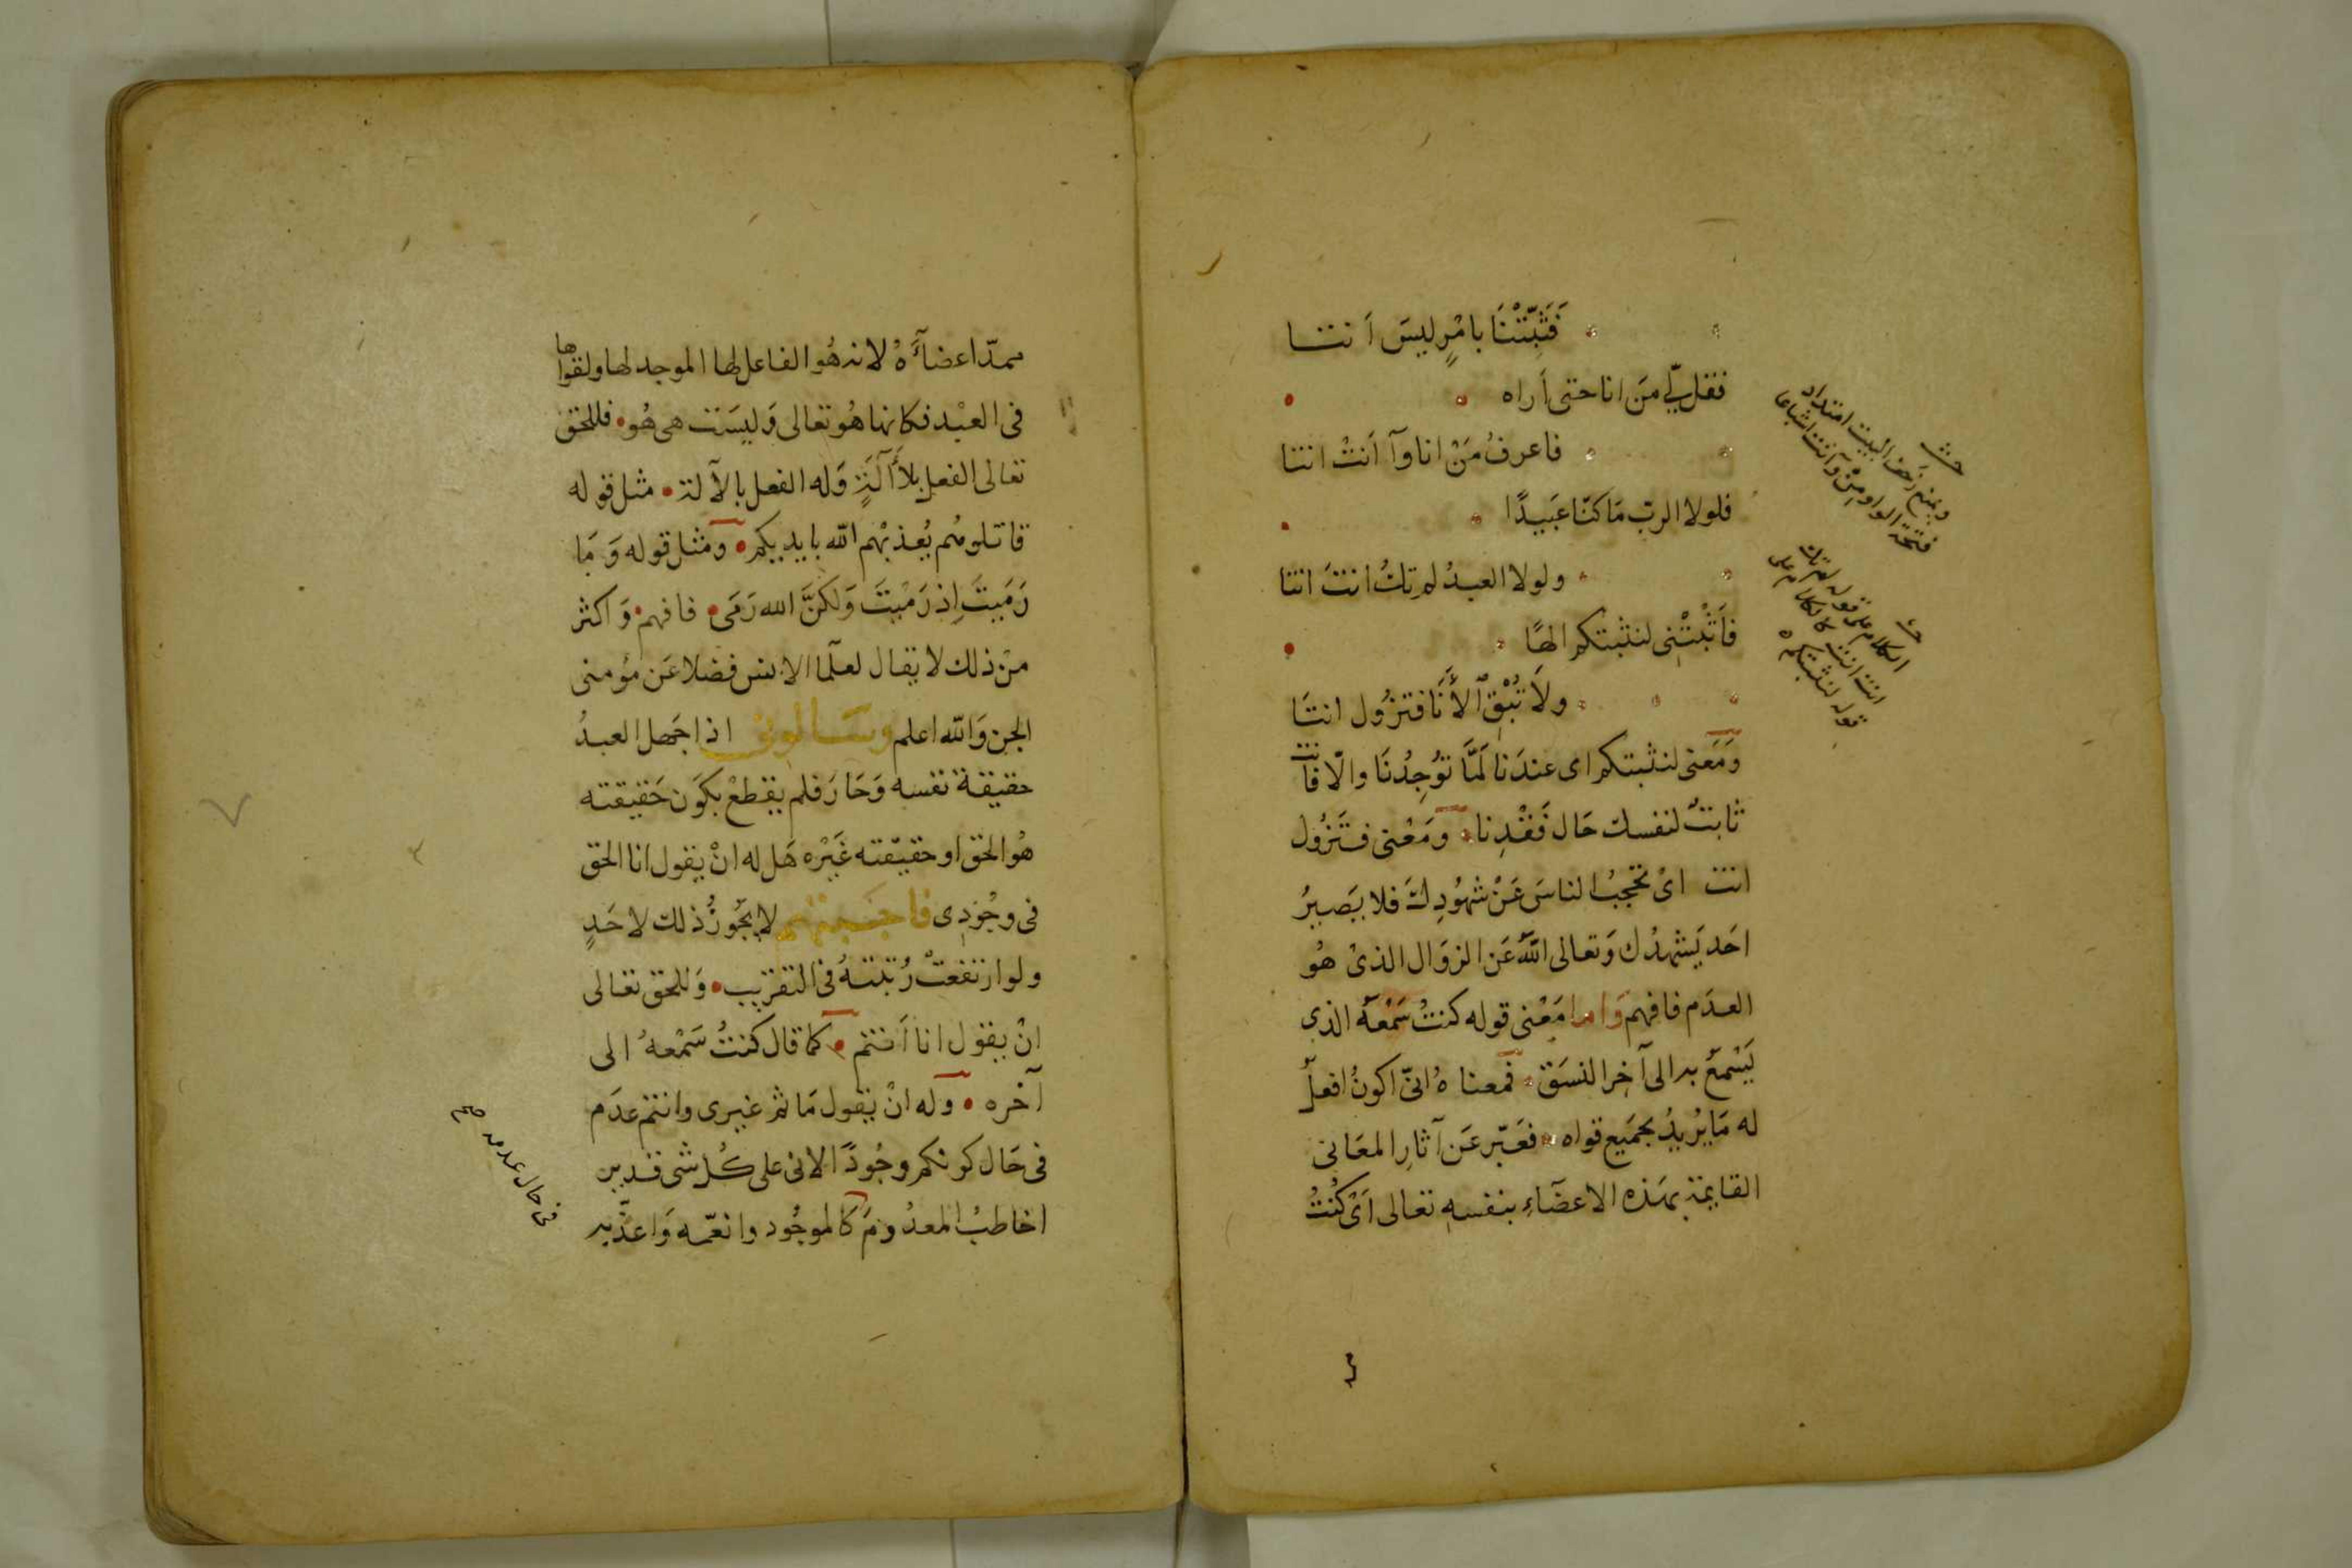 فَثَبِّتْنَا بامْرٍ ليسَ اَنتـا
فقل لِي مَن انا حتى اَراه
فاعرفُ مَنْ انا وآ اَنتْ انتا
فلولا الرب مَا كنّا عَبَيدًا
ولولا العبدُ لم تكُ انتَ انتا
فَاَثْبِتْنِى لنثبتكم الهًا
ولَا تُبْقِ الأَنَا فتزُول انتَا
وَمَعنى لنثبتكم اى عندَنا لَمَّا تُوجِدُنَا والّا فانت
ثابتٌ لنفسك حَال فَقْدِنا ومَعْنى فَتَزُول
انت اىْ تحجبُ الناسَ عَنْ شهُودِكَ فلا يَصيرُ
احَد يَشهدُك وَتعالى اللّهُ عَن الزوَال الذىْ هُو
العدَم فافهم وَاما مَعْنى قوله كنتُ سَمْعَهُ الذى
يَسْمَعُ به الى آخِر النسَق فمعناهُ انىّ اكونُ افعلُ
له مَا يُريدُ بجَميع قواه فعَبّر عَن آثارِ المعَانى
القايمة بهَذه الاعضَآءِ بنفسهِ تعالى اَىْ كُنْتُ
حش
ويمنع زحف البيت امتداد
فتحة الواو مِنْ وآنت اشباعا
حش
الكلام على قوله لم تك
انت انت كالكلام على
قوله لنثبتكم ه
ممدّ اعضآءَهُ لانه هُو الفاعل لها الموجد لها ولقواها
فى العبْد فكانها هُو تعالى وَليسَت هى هُو فللحق
تعالى الفعل بلَا آلَةٍ وَله الفعل بالآلة مثل قوله
قاتلوهُم يُعذبْهم الله بايديكم ومثل قوله وَمَا
رَمَيتَ اِذ رَمْيتَ وَلكنَّ الله رَمَى فافهم وَاكثر
من ذلك لا يقال لعلّما الانس فضلا عَن مؤمنى
الجن وَالله اعلم وسَالونى اذا جَهل العبدُ
حقيقة نفسه وَحَارَ فلم يقطعْ بكوَن حَقيقته
هُو الحق او حقيقته غَيْره هَل له انْ يقول انا الحق
فى وجُودِى فاجَبتهم لا يجُوزُ ذلك لاحَدٍ
ولو ارتفعتْ رُتبتهُ فى التقريب وَللحق تعالى
انْ يقول انا اَنتم كما قال كنتُ سَمْعهُ الى
آخره وله انْ يقول مَا ثم غيرى وانتم عدَم
فى حَال كونكم وجُودًا لانى على كُل شى قدير
اخاطبُ المعدُومَ كالموجُود وانعّمه وَاعذّبه
فى حال عدمه صح